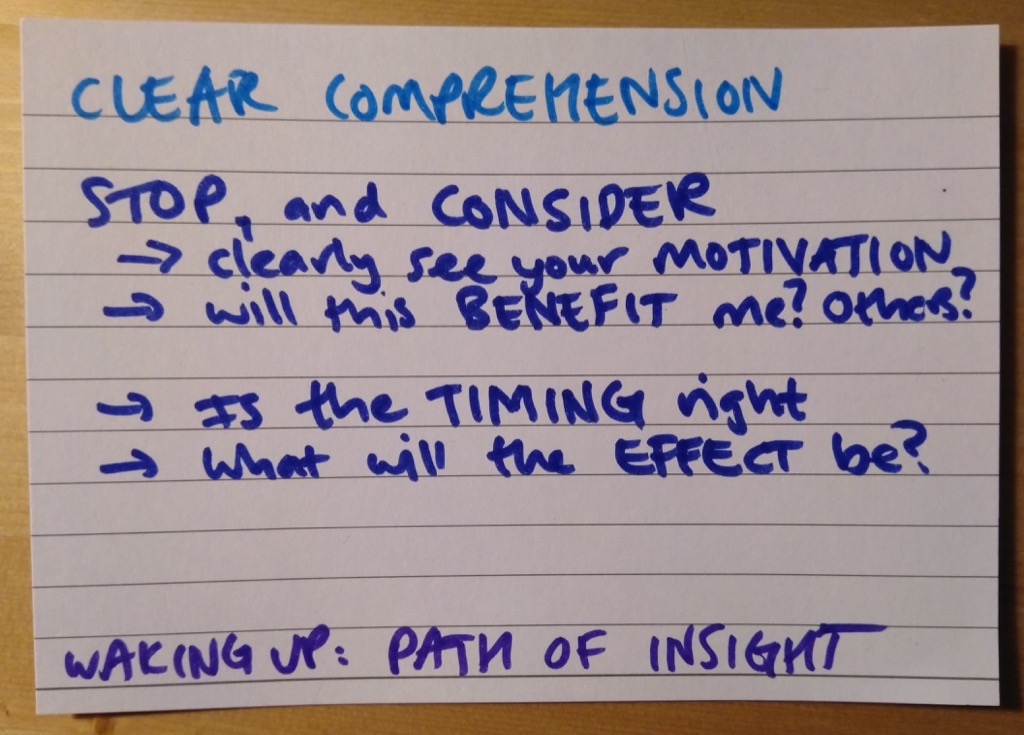 CLEAR COMPREHENSION
STOP, and CONSIDER
→ clearly see your MOTIVATION
→ will this BENEFIT me? Others?
→ Is the TIMING right
→ What will the EFFECT be?
WAKING UP: PATH OF INSIGHT